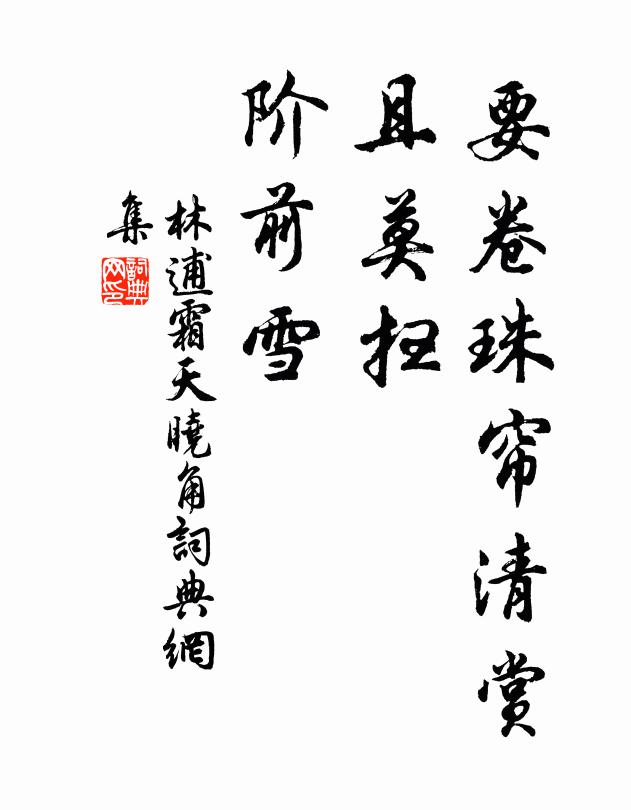 要卷珠帘清赏
且莫扫
阶前雪
林逋霜天曉角詞典網
集
詞典
网印